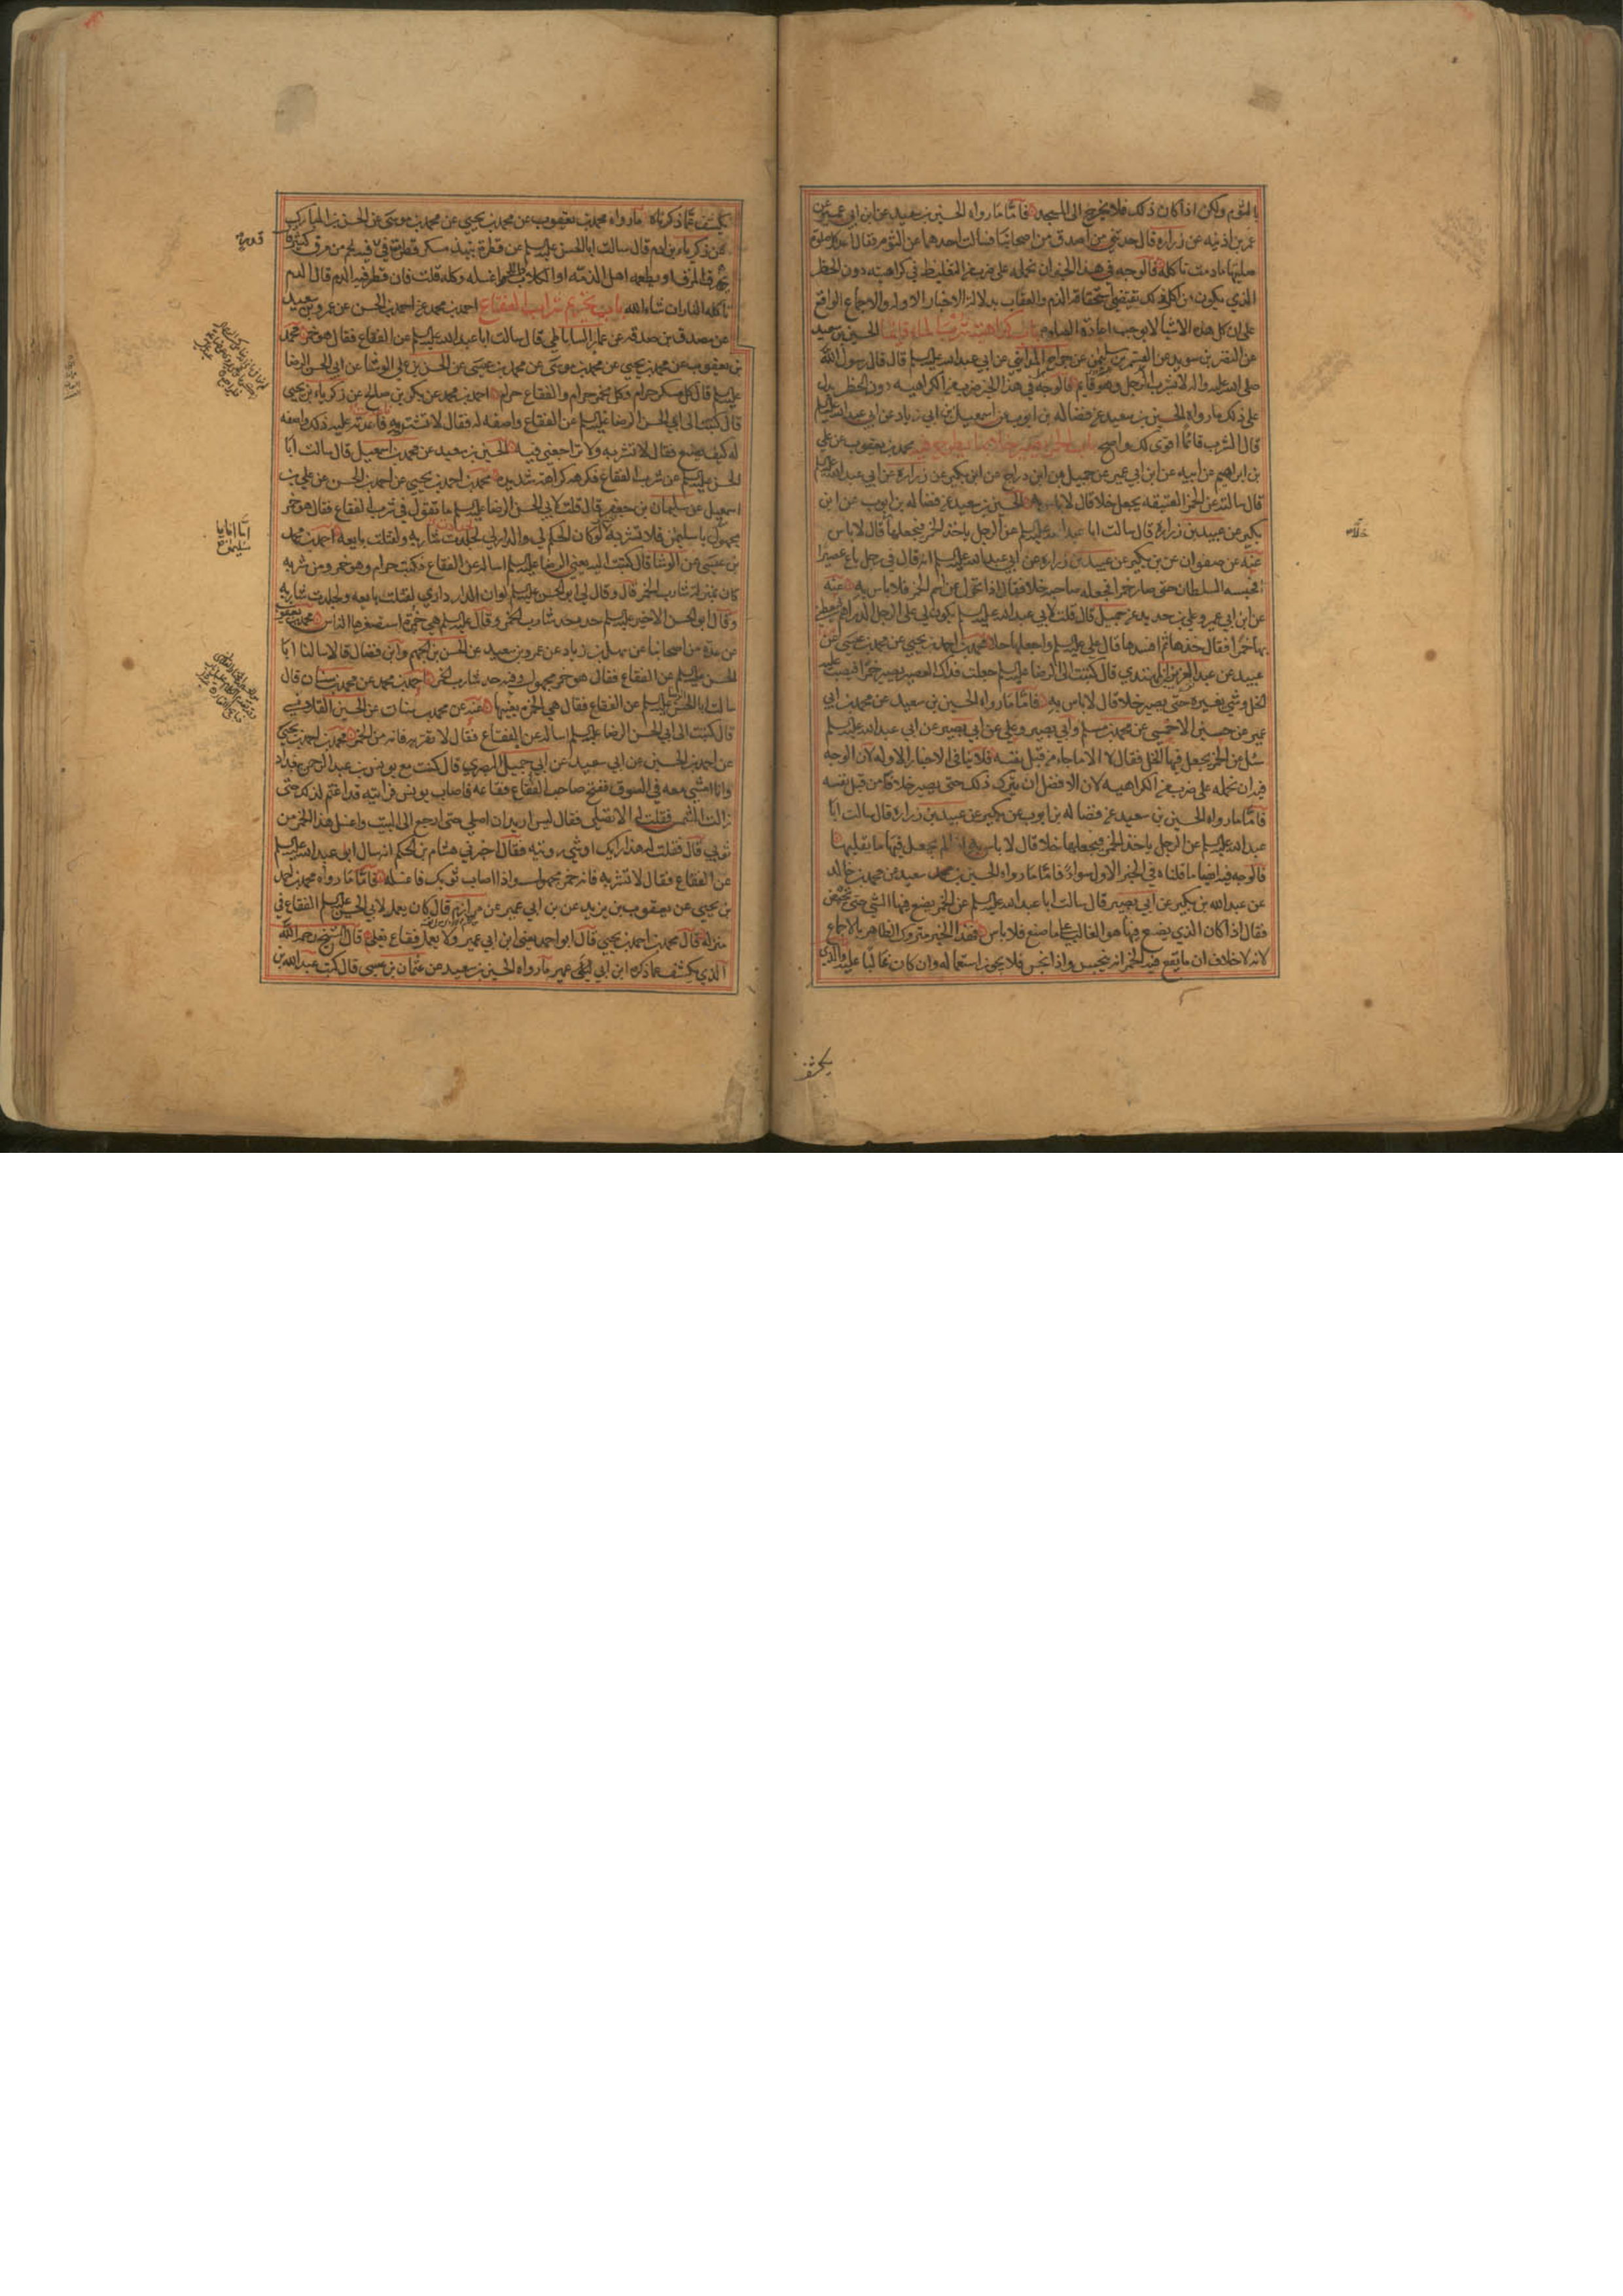 الثوم ولكن اذا كان ذلك فلا يخرج الى المسجد فاما ما رواه الحسين بن سعيد عن ابن ابي عمير عن
عمر بن اذينه عن زراره قال حدثني من اصدق من اصحابنا قال سالت احدهما عن الثوم فقال اعد كل صلوة
صليتها ما دمت تاكله فالوجه في هذا الخبر ان نحمله على ضرب من التغليظ في كراهيته دون الحظر
الذي يكون من اكل ذلك يقتضي استحقاقه الذم والعقاب بدلالة الاخبار الاوله والاجماع الواقع
على ان اكل هذه الاشيا لا يوجب اعادة الصلوة باب كراهية شرب الماء قائما الحسين بن سعيد
عن النضر بن سويد عن القسم بن سليمن عن جراح المدايني عن ابي عبد الله عليه السلم قال قال رسول الله
صلى الله عليه واله لا يشرب الرجل وهو قايم فالوجه في هذا الخبر ضرب من الكراهيه دون الحظر يدل
على ذلك ما رواه الحسين بن سعيد عن فضاله بن ايوب عن اسمعيل بن ابي زياد عن ابي عبد الله عليه السلم
قال الشرب قائما اقوى لك واصح باب الخمر يصير خلا بما يطرح فيه محمد بن يعقوب عن علي
بن ابراهيم عن ابيه عن ابن ابي عمير عن جميل بن دراج عن ابن بكير عن زراره عن ابي عبد الله عليه السلم
قال سالته عن الخمر العتيقه يجعل خلا قال لا باس الحسين بن سعيد عن فضاله بن ايوب عن ابن
بكير عن عبيد بن زراره قال سالت ابا عبد الله عليه السلم عن الرجل ياخذ الخمر فيجعلها قال لا باس
عنه عن صفوان عن بن بكير عن عبيد بن زراره عن ابي عبد الله عليه السلم انه قال في رجل باع عصيرا
فحبسه السلطان حتى صار خمرا فجعله صاحبه خلا فقال اذا تحول عن اسم الخمر فلا باس به عنه
عن ابن ابي عمير وعلي بن حديد عن جميل قال قلت لابي عبد الله عليه السلم يكون لي على الرجل الدراهم فيعطيني
بها خمرا فقال خذها ثم افسدها قال علي عليه السلم واجعلها خلا محمد بن احمد بن يحيى عن محمد بن عيسى عن
عبيد عن عبد العزيز بن المهتدي قال كتبت الى الرضا عليه السلم جعلت فداك العصير يصير خمرا فيصب عليه
الخل وشي يغيره حتى يصير خلا قال لا باس به فاما ما رواه الحسين بن سعيد عن محمد بن ابي
عمير عن حسين الاحمسي عن محمد بن مسلم وابي بصير وعلي عن ابي بصير عن ابي عبد الله عليه السلم
سئل عن الخمر يجعل فيها الخل فقال لا الا ما جاء من قبل نفسه فلا ينافي الاخبار الاوله لان الوجه
فيه ان نحمله على ضرب من الكراهيه لان الافضل ان يترك ذلك حتى يصير خلا من قبل نفسه
فاما ما رواه الحسين بن سعيد عن فضاله بن ايوب عن بكير عن عبيد بن زراره قال سالت ابا
عبد الله عليه السلم عن الرجل ياخذ الخمر فيجعلها خلا قال لا باس به اذا لم يجعل فيها ما يقلبها
فالوجه فيه ايضا ما قلناه في الخبر الاول سواء فاما ما رواه الحسين بن سعيد عن محمد بن خالد
عن عبد الله بن بكير عن ابي بصير قال سالت ابا عبد الله عليه السلم عن الخمر يضع فيها الشي حتى تحمض
فقال اذا كان الذي يضع فيها هو الغالب على ما صنع فلا باس فهذا الخبر متروك الظاهر بالاجماع
لانه لا خلاف ان ما يقع فيه الخمر انه ينجس واذا نجس فلا يجوز استعماله وان كان غالبا عليه والذي
يكشف
يكشف عما ذكرناه ما رواه محمد بن يعقوب عن محمد بن يحيى عن محمد بن موسى عن الحسن بن المبارك
عن زكريا بن ادم قال سالت ابا الحسن عليه السلم عن قطرة نبيذ مسكر قطرت في قدر فيه لحم ومرق كثير قال
يهراق المرق او يطعمه اهل الذمه او الكلاب واللحم اغسله وكله قلت فان قطر فيه الدم قال الدم
تاكله النار ان شاء الله باب تحريم شراب الفقاع احمد بن محمد عن احمد بن الحسن عن عمرو بن سعيد
عن مصدق بن صدقه عن عمار الساباطي قال سالت ابا عبد الله عليه السلم عن الفقاع فقال هو خمر محمد
بن يعقوب عن محمد بن يحيى عن محمد بن موسى عن محمد بن عيسى عن الحسن بن علي الوشا عن ابي الحسن الرضا
عليه السلم قال كل مسكر حرام وكل مخمر حرام والفقاع حرام احمد بن محمد عن بكر بن صالح عن زكرياء بن يحيى
قال كتبت الى ابي الحسن الرضا عليه السلم عن الفقاع واصفه له فقال لا تشربه فاعدت عليه ذلك واصفه
له كيف يصنع فقال لا تشربه ولا تراجعني فيه الحسين بن سعيد عن محمد بن اسمعيل قال سالت ابا
الحسن عليه السلم عن شرب الفقاع فكرهه كراهة شديدة محمد بن احمد بن يحيى عن احمد بن الحسن عن علي بن
اسمعيل عن سليمان بن جعفر قال قلت لابي الحسن الرضا عليه السلم ما تقول في شرب الفقاع فقال هو خمر
مجهول يا سليمن فلا تشربه لو كان الحكم لي والدار لي لجلدت شاربه ولقتلت بايعه احمد بن محمد
بن عيسى عن الوشا قال كتبت اليه يعني الرضا عليه السلم اساله عن الفقاع فكتب حرام وهو خمر ومن شربه
كان بمنزلة شارب الخمر قال وقال لي ابو الحسن عليه السلم لو ان الدار داري لقتلت بايعه ولجلدت شاربه
وقال ابو الحسن الاخير عليه السلم حده حد شارب الخمر وقال عليه السلم هي خمرة استصغرها الناس محمد بن يعقوب
عن عدة من اصحابنا عن سهل بن زياد عن عمرو بن سعيد عن الحسن بن الجهم وابن فضال قالا سالنا ابا
الحسن عليه السلم عن الفقاع فقال هو خمر مجهول وفيه حد شارب الخمر احمد بن محمد عن محمد بن سنان قال
سالت ابا الحسن الرضا عليه السلم عن الفقاع فقال هي الخمر بعينها عنه عن محمد بن سنان عن الحسين القلانسي
قال كتبت الى ابي الحسن الرضا عليه السلم اساله عن الفقاع فقال لا تقربه فانه من الخمر محمد بن احمد بن يحيى
عن احمد بن الحسين عن ابي سعيد عن ابي جميل البصري قال كنت مع يونس بن عبد الرحمن ببغداد
وانا امشي معه في السوق ففتح صاحب الفقاع فقاعه فاصاب يونس فرايته قد اغتم لذلك حتى
زالت الشمس فقلت له الا تصلي فقال ليس اريد ان اصلي حتى ارجع الى البيت واغسل هذا الخمر من
ثوبي قال فقلت له هذا رايك او شي ترويه فقال اخبرني هشام بن الحكم انه سال ابا عبد الله عليه السلم
عن الفقاع فقال لا تشربه فانه خمر مجهول واذا اصاب ثوبك فاغسله فاما ما رواه محمد بن احمد
بن يحيى عن يعقوب بن يزيد عن بن ابي عمير عن مرازم قال كان يعمل لابي الحسن عليه السلم الفقاع في
منزله قال محمد بن احمد بن يحيى قال ابو احمد يعني ابن ابي عمير ولا يعمل فقاع يغلي قال الشيخ رحمه الله
الذي يكشف عما ذكره ابن ابي عمير ما رواه الحسين بن سعيد عن عثمان بن عيسى قال كتب عبد الله بن